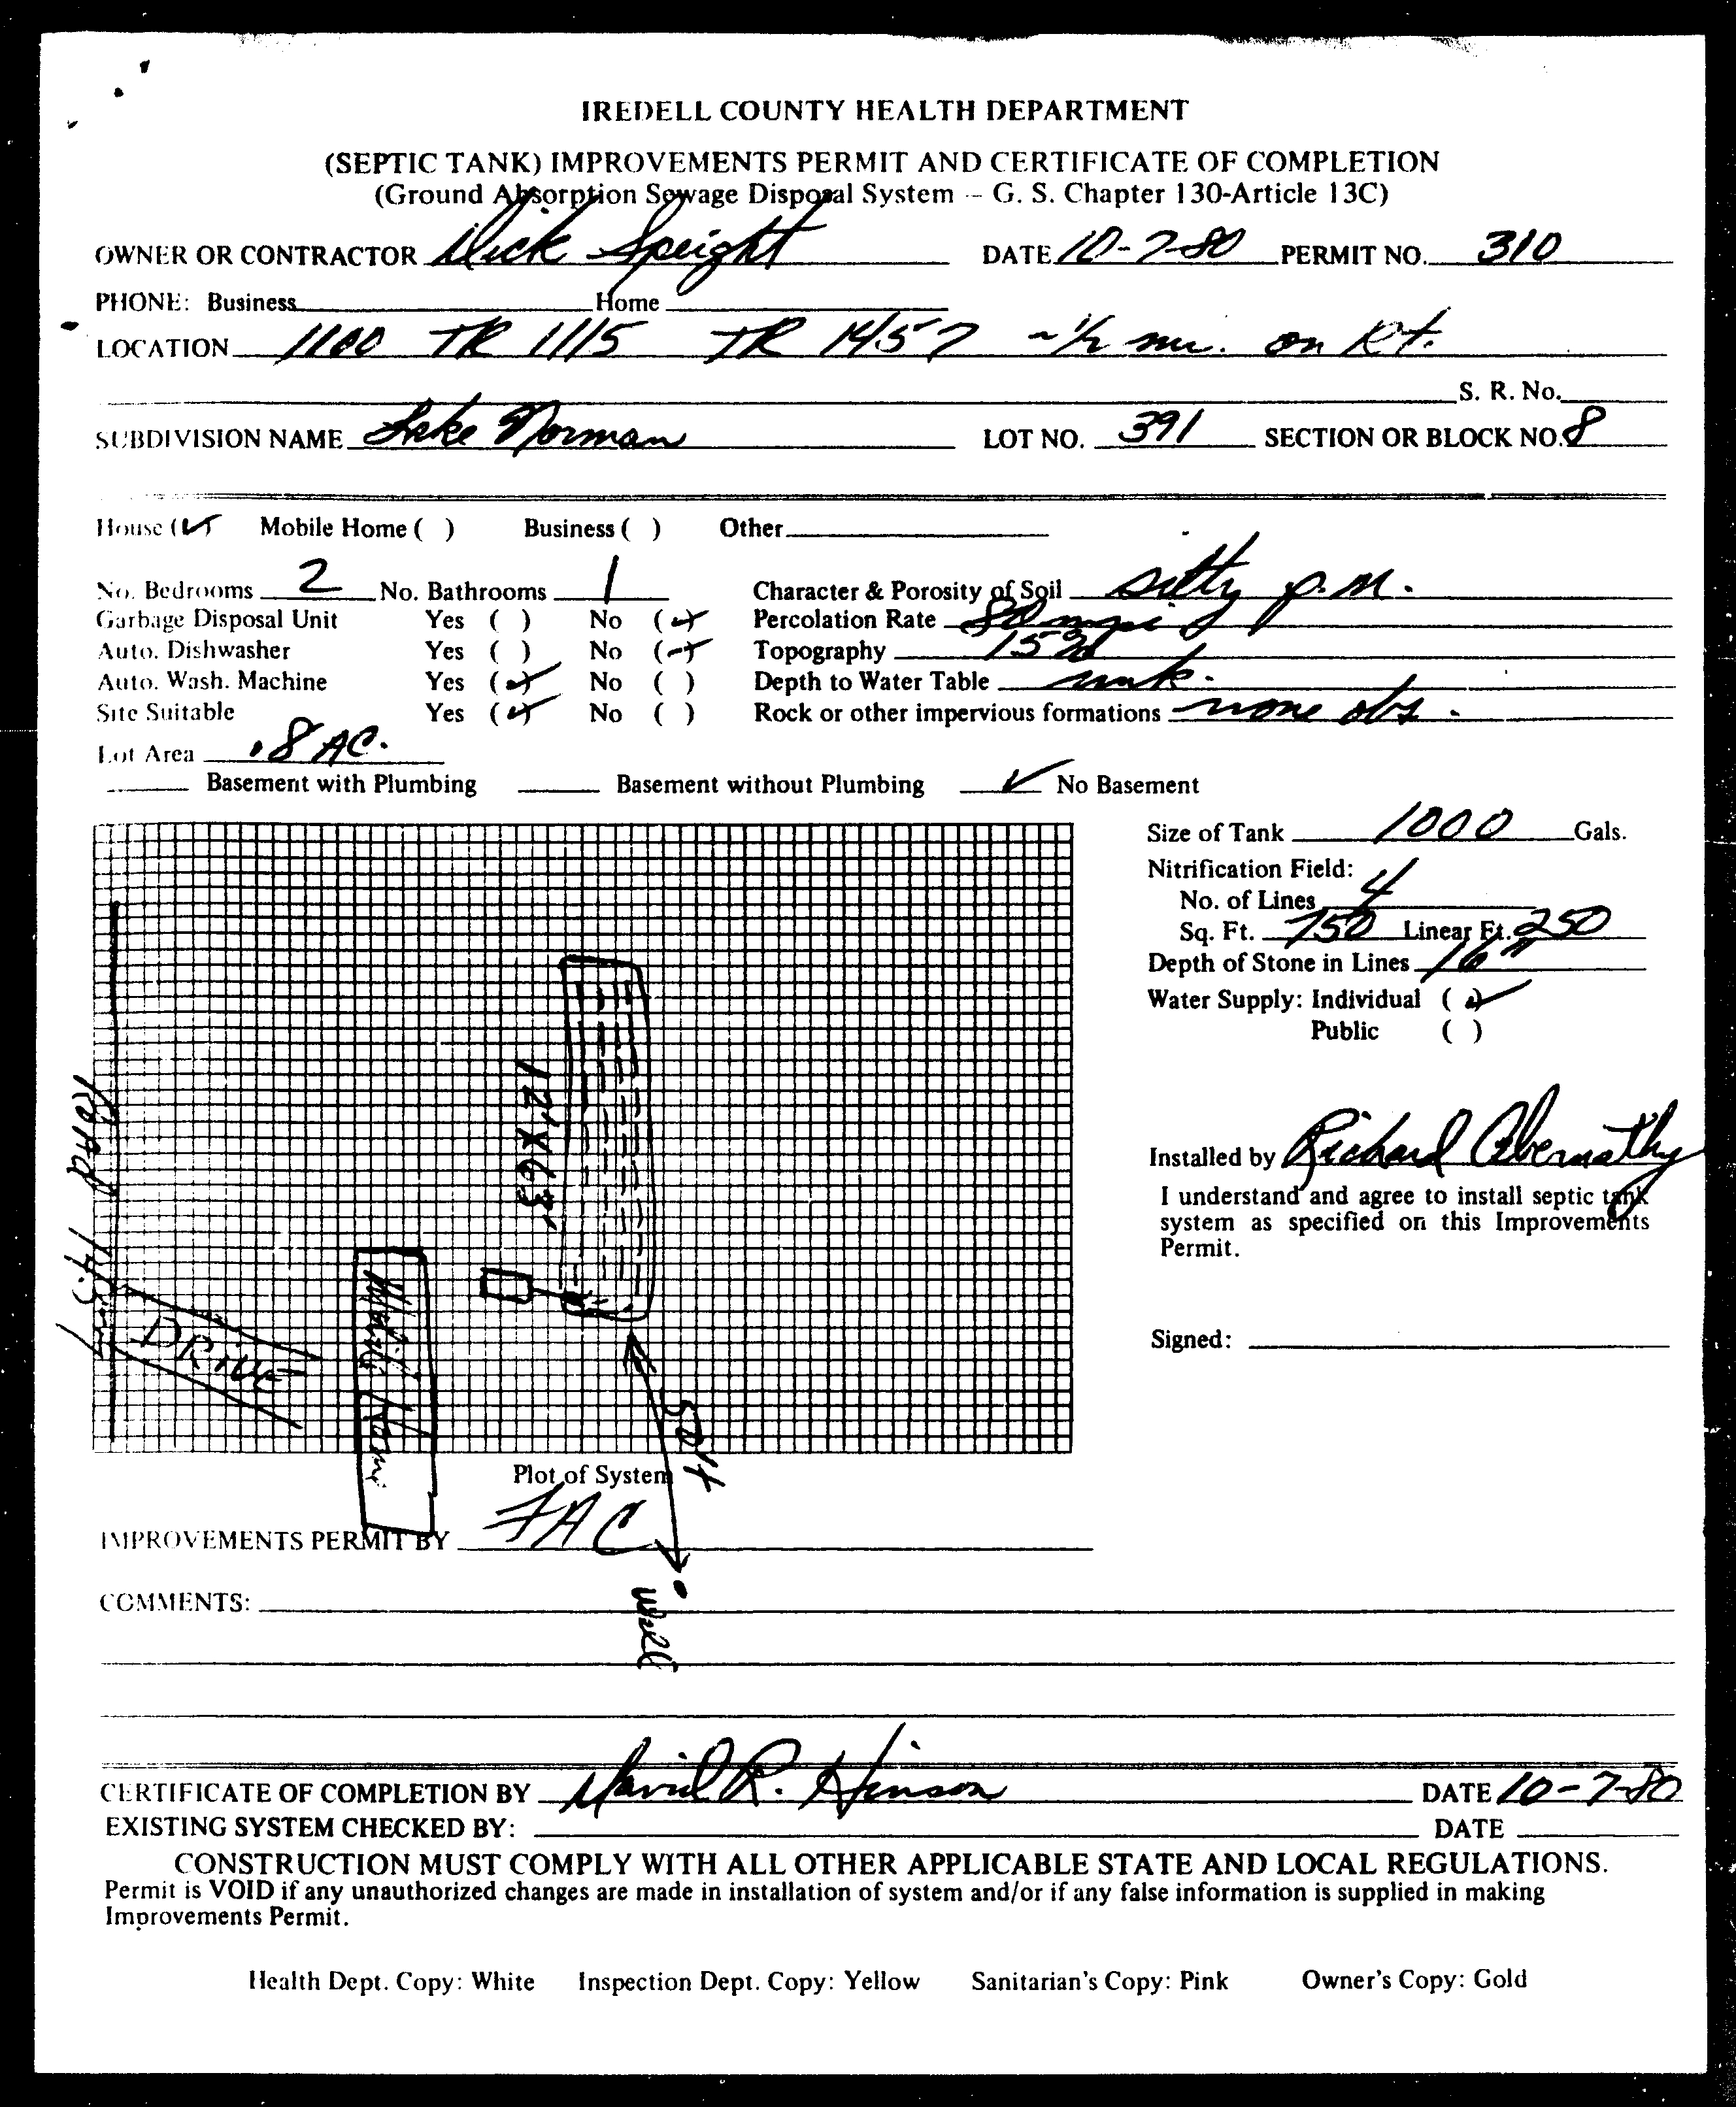 IREDELL COUNTY HEALTH DEPARTMENT
(SEPTIC TANK) IMPROVEMENTS PERMIT AND CERTIFICATE OF COMPLETION
(Ground Absorption Sewage Disposal System -- G. S. Chapter 130-Article 13C)
OWNER OR CONTRACTOR Dick Speight DATE 10-7-80 PERMIT NO. 310
PHONE: Business Home
LOCATION 1100 TR 1115 TR 1457 ~1/2 mi. on Rt.
S. R. No.
SUBDIVISION NAME Lake Norman LOT NO. 391 SECTION OR BLOCK NO. 8
House (✓) Mobile Home ( ) Business ( ) Other
No. Bedrooms 2 No. Bathrooms 1 Character & Porosity of Soil silty p.m.
Garbage Disposal Unit Yes ( ) No (✓) Percolation Rate 80 mpi
Auto. Dishwasher Yes ( ) No (✓) Topography 15%
Auto. Wash. Machine Yes (✓) No ( ) Depth to Water Table unk.
Site Suitable Yes (✓) No ( ) Rock or other impervious formations none obs.
Lot Area .8 AC.
Basement with Plumbing Basement without Plumbing ✓ No Basement
Size of Tank 1000 Gals.
Nitrification Field:
No. of Lines 4
Sq. Ft. 750 Linear Ft. 250
Depth of Stone in Lines 16"
Water Supply: Individual (✓)
Public ( )
Installed by Richard Abernathy
I understand and agree to install septic tank
system as specified on this Improvements
Permit.
Signed:
Road 1457
DRIVE
Mobile Home
12' X 63'
50 ft
Well
Plot of System
IMPROVEMENTS PERMIT BY FAC
COMMENTS:
CERTIFICATE OF COMPLETION BY David R. Hinson DATE 10-7-80
EXISTING SYSTEM CHECKED BY: DATE
CONSTRUCTION MUST COMPLY WITH ALL OTHER APPLICABLE STATE AND LOCAL REGULATIONS.
Permit is VOID if any unauthorized changes are made in installation of system and/or if any false information is supplied in making
Improvements Permit.
Health Dept. Copy: White Inspection Dept. Copy: Yellow Sanitarian's Copy: Pink Owner's Copy: Gold